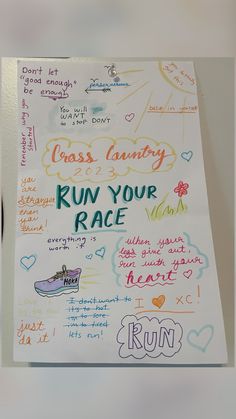 Don't let
"good enough"
be enough
perseverance
You will
WANT
to stop DON'T
believe in yourself
remember why you
started
Cross Country
2023
you
are
stronger
than
you
think!
RUN YOUR
RACE
everything is
worth it
when your
legs give out,
run with your
heart
HOKA
just
do it!
I don't want to
it's to hot
im to sore
im to tired
lets run!
I XC!
RUN